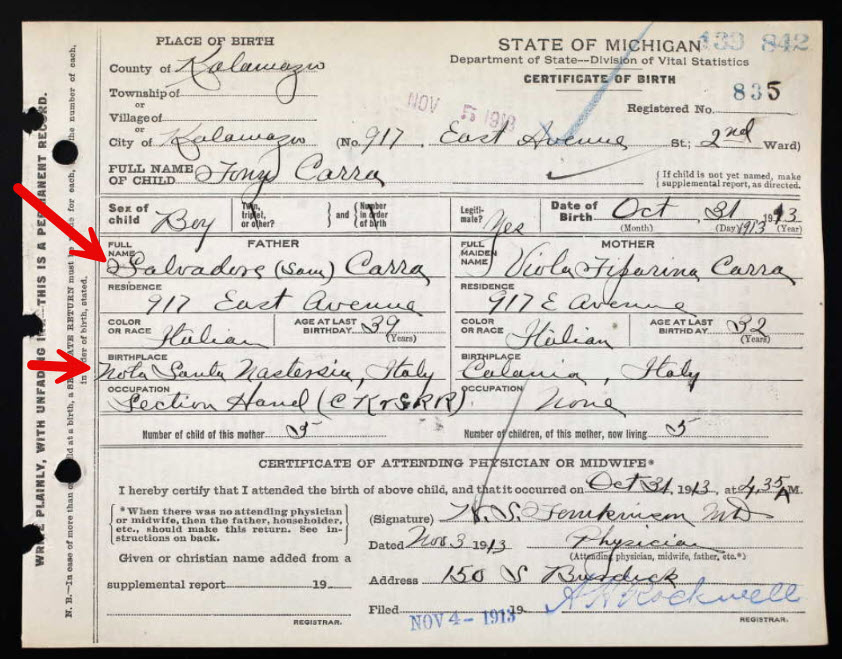 PLACE OF BIRTH
County of Kalamazoo
Township of
or
Village of
or
City of Kalamazoo (No. 917, East Avenue St; 2nd Ward)
STATE OF MICHIGAN 139 842
Department of State—Division of Vital Statistics
CERTIFICATE OF BIRTH
835
Registered No.
NOV 5 1913
FULL NAME OF CHILD Tony Carra
{If child is not yet named, make supplemental report, as directed.
Sex of child Boy
Twin, triplet, or other? } and { Number in order of birth
Legiti- male? Yes
Date of Birth Oct 31 1913
(Month) (Day) 1913 (Year)
FATHER
FULL NAME Salvadore (Sam) Carra
RESIDENCE
917 East Avenue
COLOR OR RACE Italian
AGE AT LAST BIRTHDAY 39 (Years)
BIRTHPLACE
Nola Santa, Italy
OCCUPATION
Section Hand (C K & S RR)
MOTHER
FULL MAIDEN NAME Viola Carra
RESIDENCE
917 E Avenue
COLOR OR RACE Italian
AGE AT LAST BIRTHDAY 32 (Years)
BIRTHPLACE
Catania, Italy
OCCUPATION
None
Number of child of this mother 5
Number of children, of this mother, now living 5
CERTIFICATE OF ATTENDING PHYSICIAN OR MIDWIFE*
I hereby certify that I attended the birth of above child, and that it occurred on Oct 31, 1913, at 4.35 A M.
{*When there was no attending physician
or midwife, then the father, householder,
etc., should make this return. See in-
structions on back.}
(Signature) H. S. MD
Dated Nov 3 1913 Physician
(Attending physician, midwife, father, etc.*)
Given or christian name added from a
supplemental report 19
REGISTRAR.
Address 150 S Burdick
Filed NOV 4 - 1913 19 A H Rockwell
REGISTRAR.
WRITE PLAINLY, WITH UNFADING INK—THIS IS A PERMANENT RECORD.
N. B.—In case of more than child at a birth, a SEPARATE RETURN must be for each, the number of each,
in order of birth, stated.